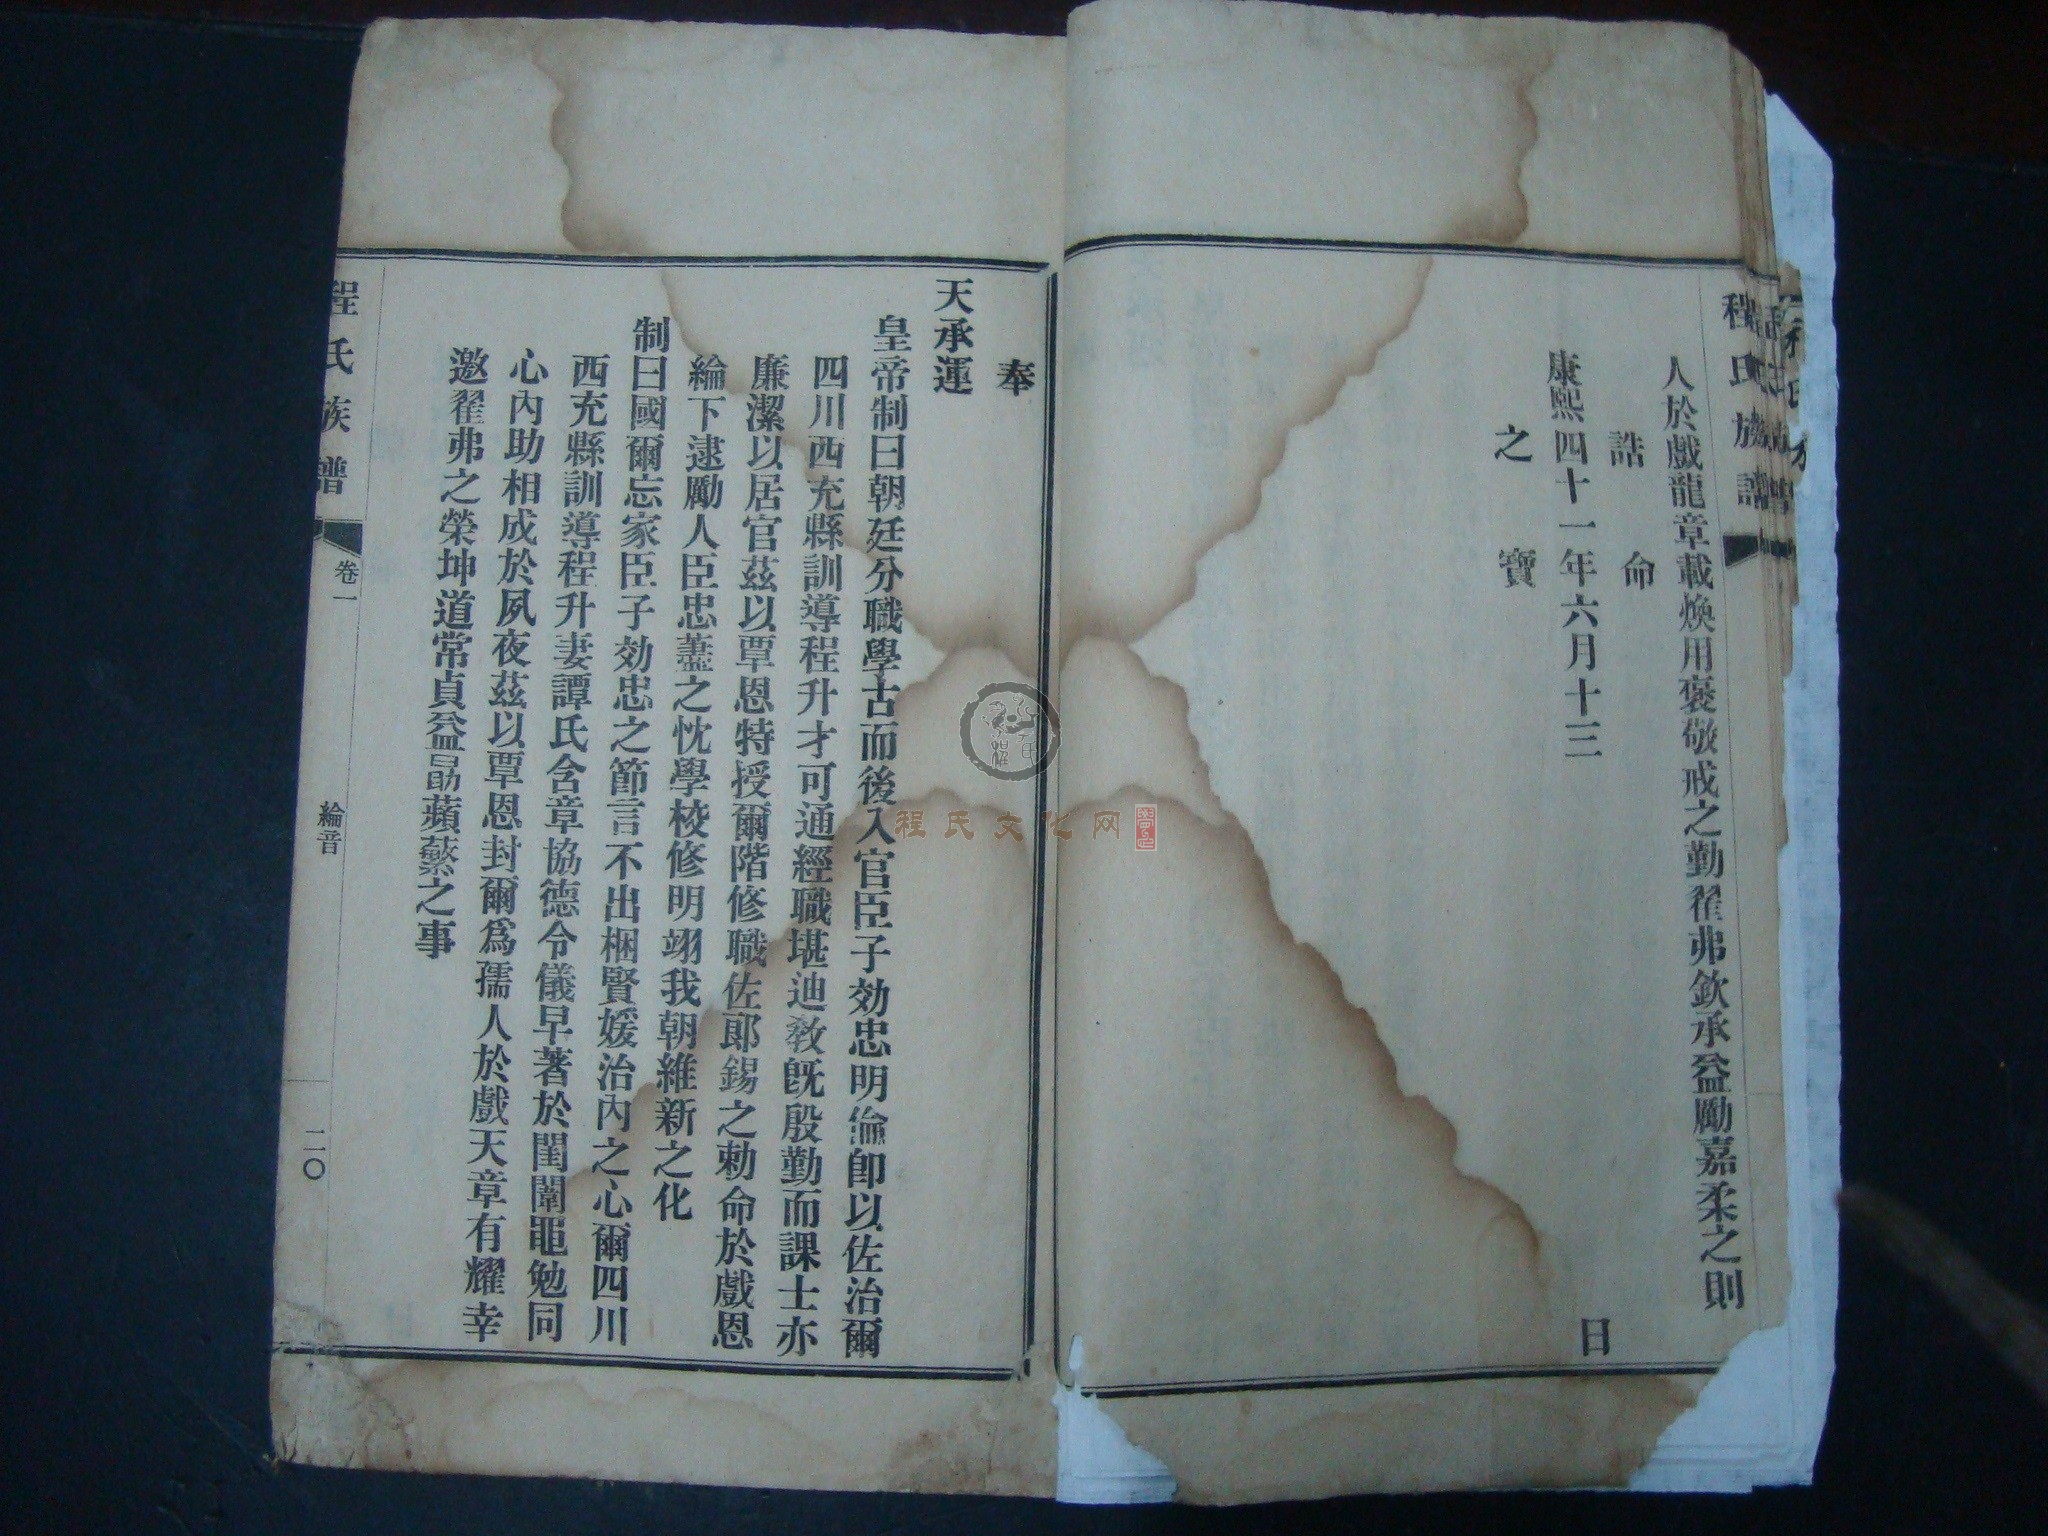 程氏族譜
人於戲龍章載煥用褒敬戒之勤翟弗欽承益勵嘉柔之則
誥命
康熙四十一年六月十三日
之寶
奉
天承運
皇帝制曰朝廷分職學古而後入官臣子効忠明倫即以佐治爾
四川西充縣訓導程升才可通經職堪迪教既殷勤而課士亦
廉潔以居官茲以覃恩特授爾階修職佐郎錫之勅命於戲恩
綸下逮勵人臣忠藎之忱學校修明翊我朝維新之化
制曰國爾忘家臣子効忠之節言不出梱賢媛治內之心爾四川
西充縣訓導程升妻譚氏含章協德令儀早著於閨闈黽勉同
心內助相成於夙夜茲以覃恩封爾爲孺人於戲天章有耀幸
邀翟弗之榮坤道常貞益勗蘋蘩之事
程氏族譜
卷一
綸音
二〇
程氏文化网